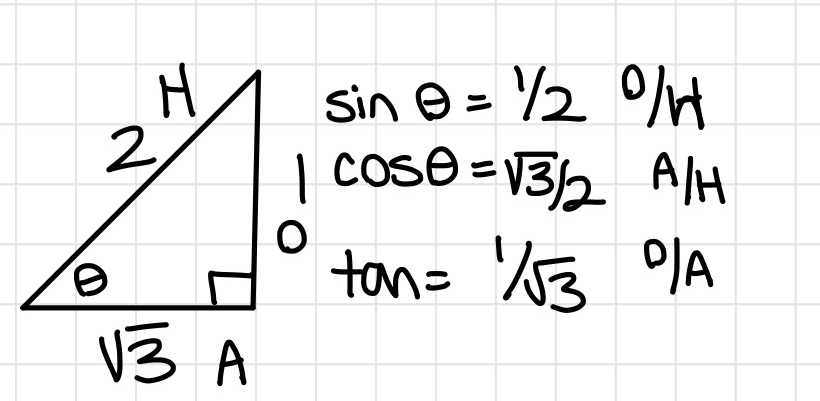 H
2
θ
1
O
√3 A
sin θ = 1/2 O/H
cosθ = √3/2 A/H
tan = 1/√3 O/A